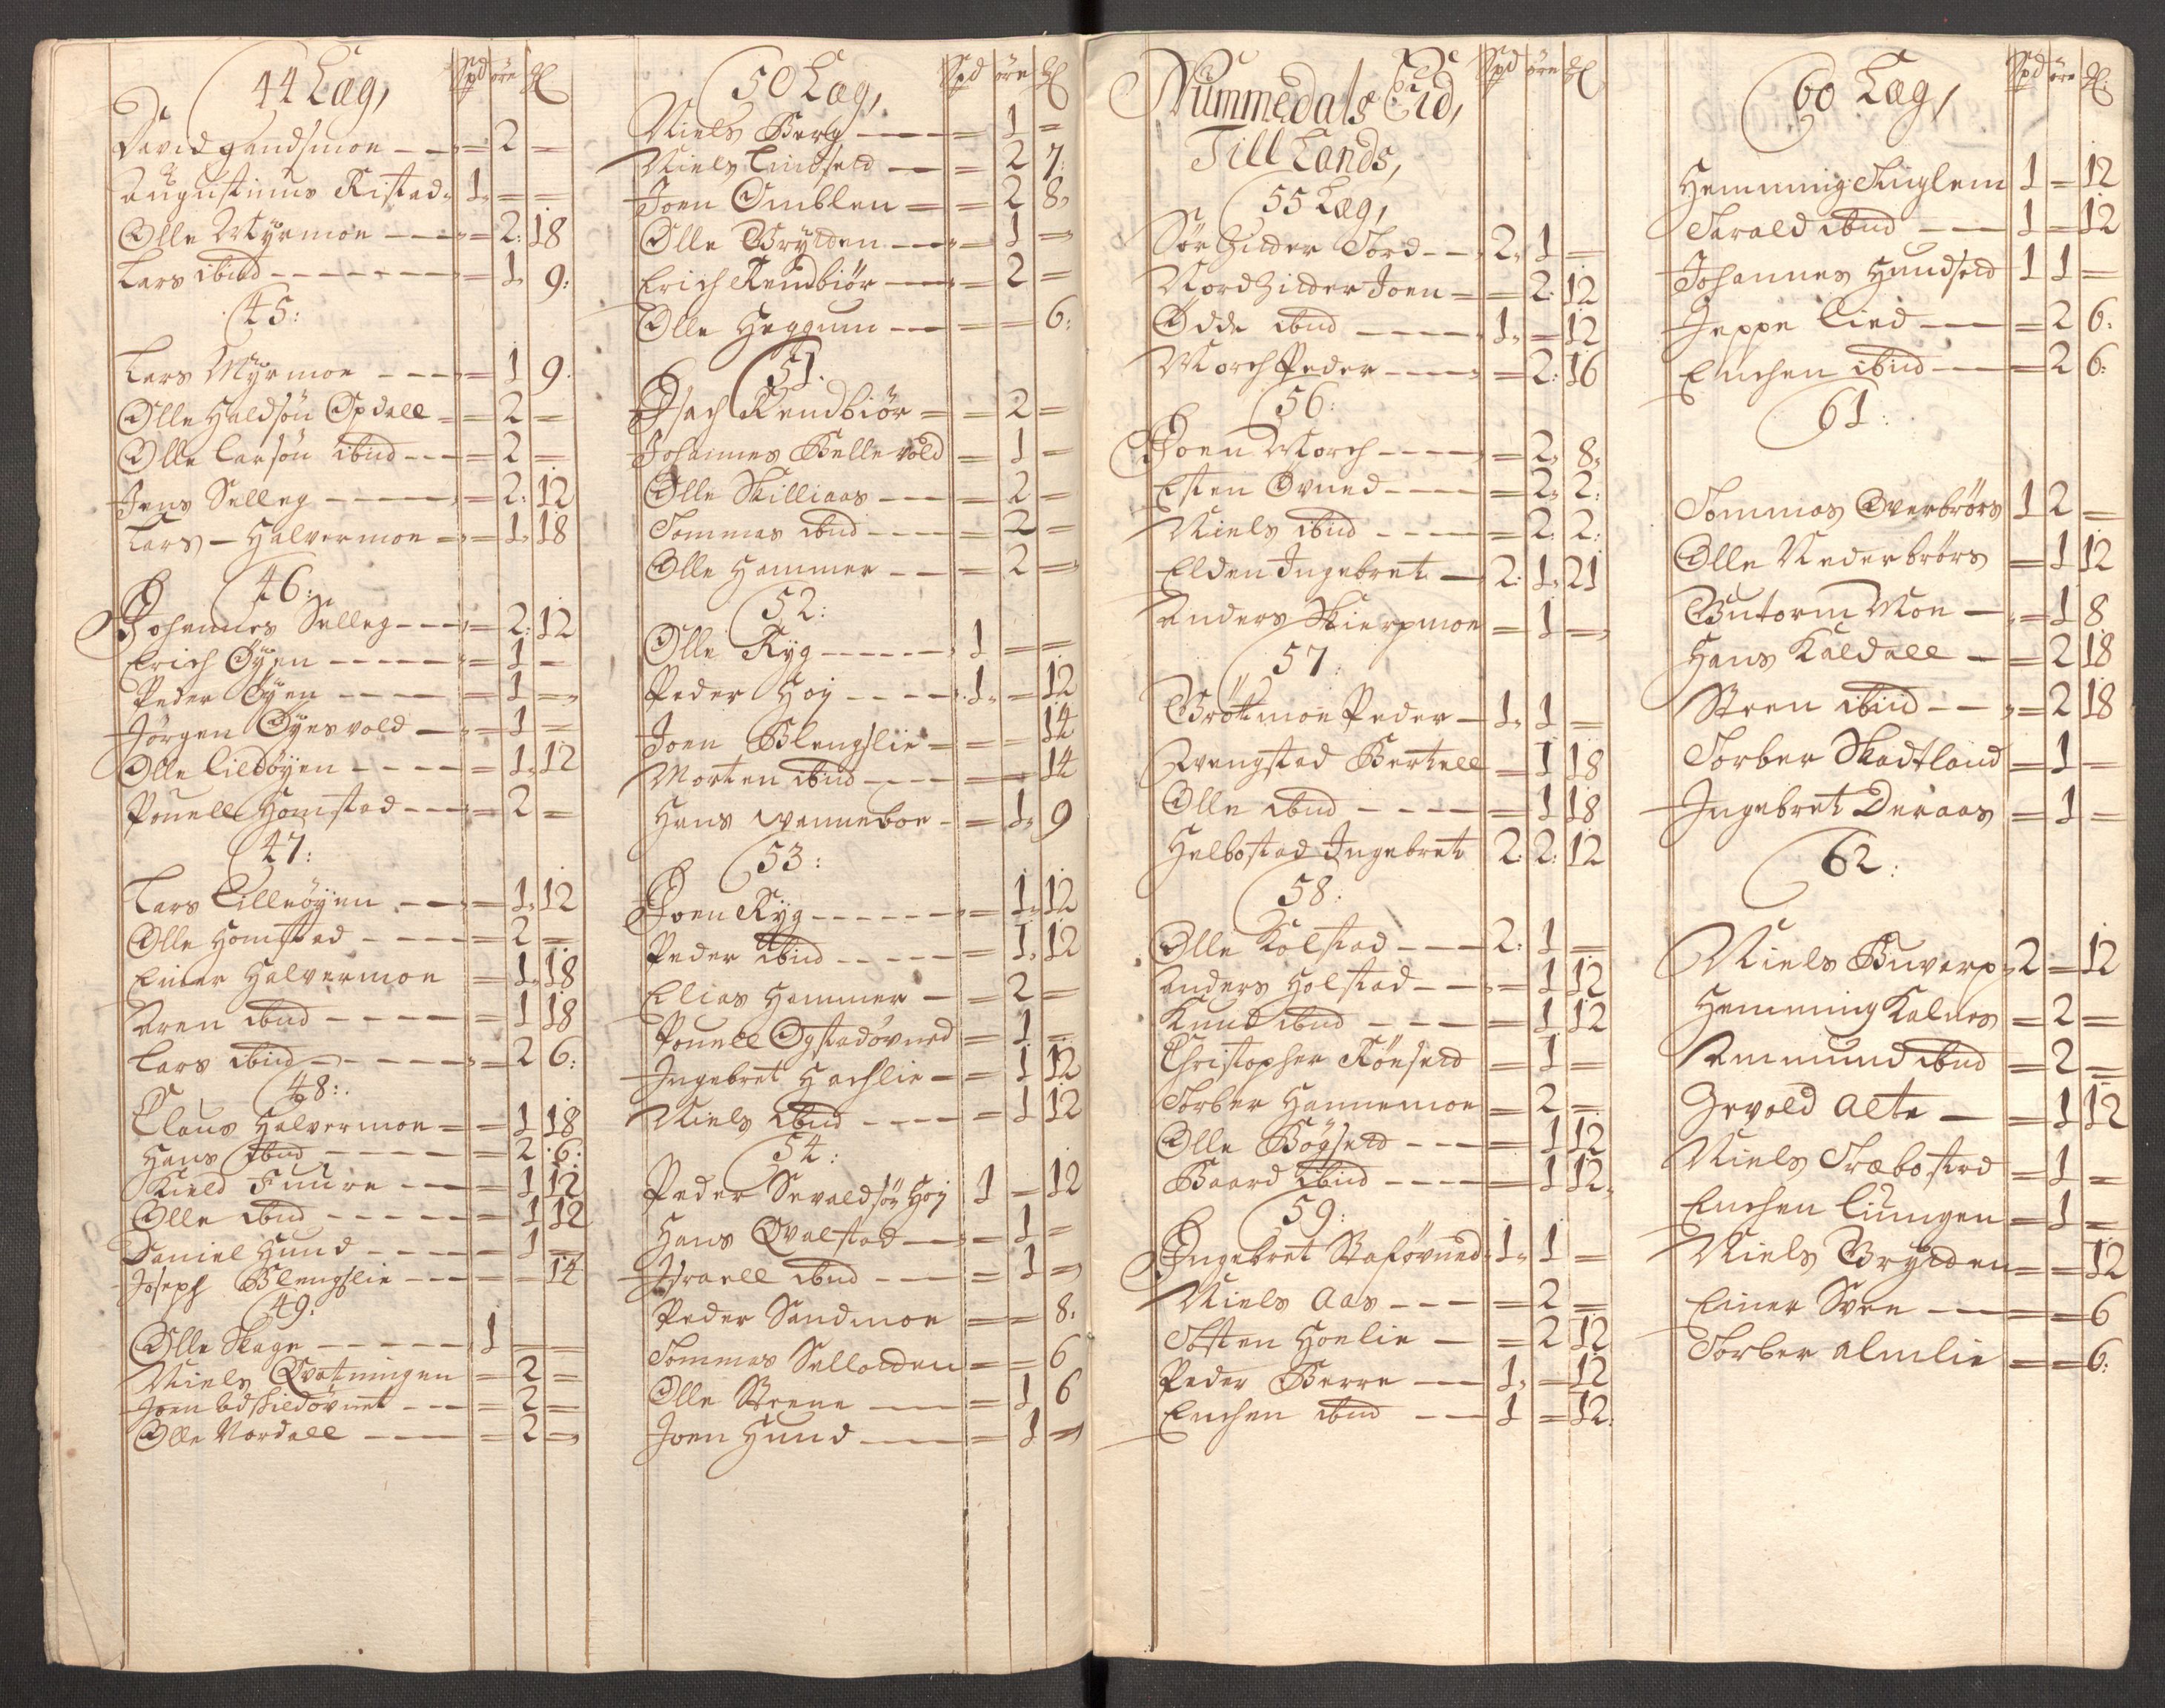 44 Læg, Spd öre ₰
David gandsmoe - - = 2 =
Augustinus Ristad 1 = =
Olle Myrmoe - - = 2: 18
Lars ibnd - - - = 1 9:
45:
Lars Myrmoe - - - = 1 9.
Olle Haldsön Opdall = 2 =
Olle Larsön ibnd - - = 2 =
Jens Selleg - - - = 2: 12
Lars - Halvermoe = 1 18
46:
Johannes Selleg - - = 2: 12
Erich Öyen - - - = 1 =
Peder Öyen - - - = 1 =
Jörgen Öyesvold - = 1 =
Olle Lildöyen - - - = 1 12
Pouell Homstad - - = 2 =
47:
Lars Lilleöyen - - = 1 12
Olle Homstad - - - = 2 =
Einer Halvermoe = 1 18
Aren ibnd - - - - = 1 18
Lars ibnd - - - - = 2 6:
48:
Claus Halvermoe = 1 18
Hans ibnd - - - - = 2 6:
Kield Fuure - - = 1 12
Olle ibnd - - - - = 1 12
Daniel Hund - - - = 1 =
Joseph Blengslie - - = = 14
49:
Olle Skage - - - - 1 = =
Niels Qvatningen = 2 =
Joen Lidskieldövnet - - = 2 =
Olle Vordall - - = 2 =
50 Læg, Spd öre ₰
Niels Berg - - = 1 =
Niels Lindseld - - = 2 7:
JoenÖmblen = = 2 8
Olle Brynden - - = 1 =
Erich Rendbiör - - = 2 =
Olle Heggum - - = = 6:
51.
Isach Rendbiör = = 2 =
Johannes Bellevold = 1 =
Olle Skilliaas - - = 2 =
Tommas ibnd - - - = 2 =
Olle Hammer - - = 2 =
52:
Olle Ryg - - - - 1 = =
Peder Hoy - - - - 1 = 12
Joen Blengslie = = = 14
Morten ibnd - - - = = 14
Hans Wenneboe - = 1 9
53:
Joen Ryg - - - - = 1 12
Peder ibnd - - - = 1 12
Elias Hammer - = 2 =
Pouell Ogstadövned = 1 =
Ingebret Hachlie = = 1 12
Niels ibnd - - - = 1 12
54:
Peder Sevaldsön Hoy 1 = 12
Hans Qvalstad - - = 1 =
Israell ibnd - - = 1 =
Peder Sandmoe = = 8.
Tommas Sellonden = = 6
Olle Steene - - = 1 6
Joen Hund - - = 1 =
Nummedals Eid, Spd öre ₰
Till Lands,
55 Læg,
Sör Hinder Tord - - 2 1 =
Nord Hinder Joen = = 2: 12
Odde ibnd - - - 1 = 12
Morch Peder - - - = 2: 16
56:
Joen Morch - - - = 2 8
Esten Övned - - - = 2 2:
Niels ibnd - - - = 2: 2:
Elden Ingebret - 2: 1 21
Anders Skierpmoe = 1 =
57:
Bröttmoe Peder - 1 1 =
Svengstad Bertell = 1 18
Olle ibnd - - - = 1 18
Helbostad Ingebret 2: 2: 12
58:
Olle Kolstad - - - 2: 1 =
Anders Holstad - - = 1 12
Knud ibnd - - - = 1 12
Christopher Rönseld = 1 =
Torber Hannemoe = 2 =
Olle Bögseld - - - = 1 12
Baard ibnd - - - = 1 12
59:
Ingebret Staföved 1 1 =
Niels Aas - - - = 2 =
Tosten Hoelie - = 2 12
Peder Berre - - 1 = 12
Enchen ibnd - - 1 = 12:
60 Læg, Spd öre ₰
Hemming Tinglem 1 = 12
Tarald ibnd - - - 1 = 12
Johannes Hundseld 1 1 =
Jeppe Lied - - = 2 6:
Enchen ibnd - - = 2 6:
61:
Tommas Overbrörs 1 2 =
Olle Nederbrörs = 1 12
Gutorm Moe - = 1 8
Hans Kaldall - = 2 18
Steen ibnd - - = 2 18
Torber Skadtland = 1 =
Ingebret Deraas = 1 =
62:
Niels Buvarp 2 = 12
Hemming Kalnes = 2 =
Ammund ibnd = 2 =
Gevold Alte - = 1 12
Niels Træbostad = 1 =
Enchen Liungen = 1 =
Niels Brynden = = 12
Einer Sven - - = = 6
Torber Almlie = = 6: